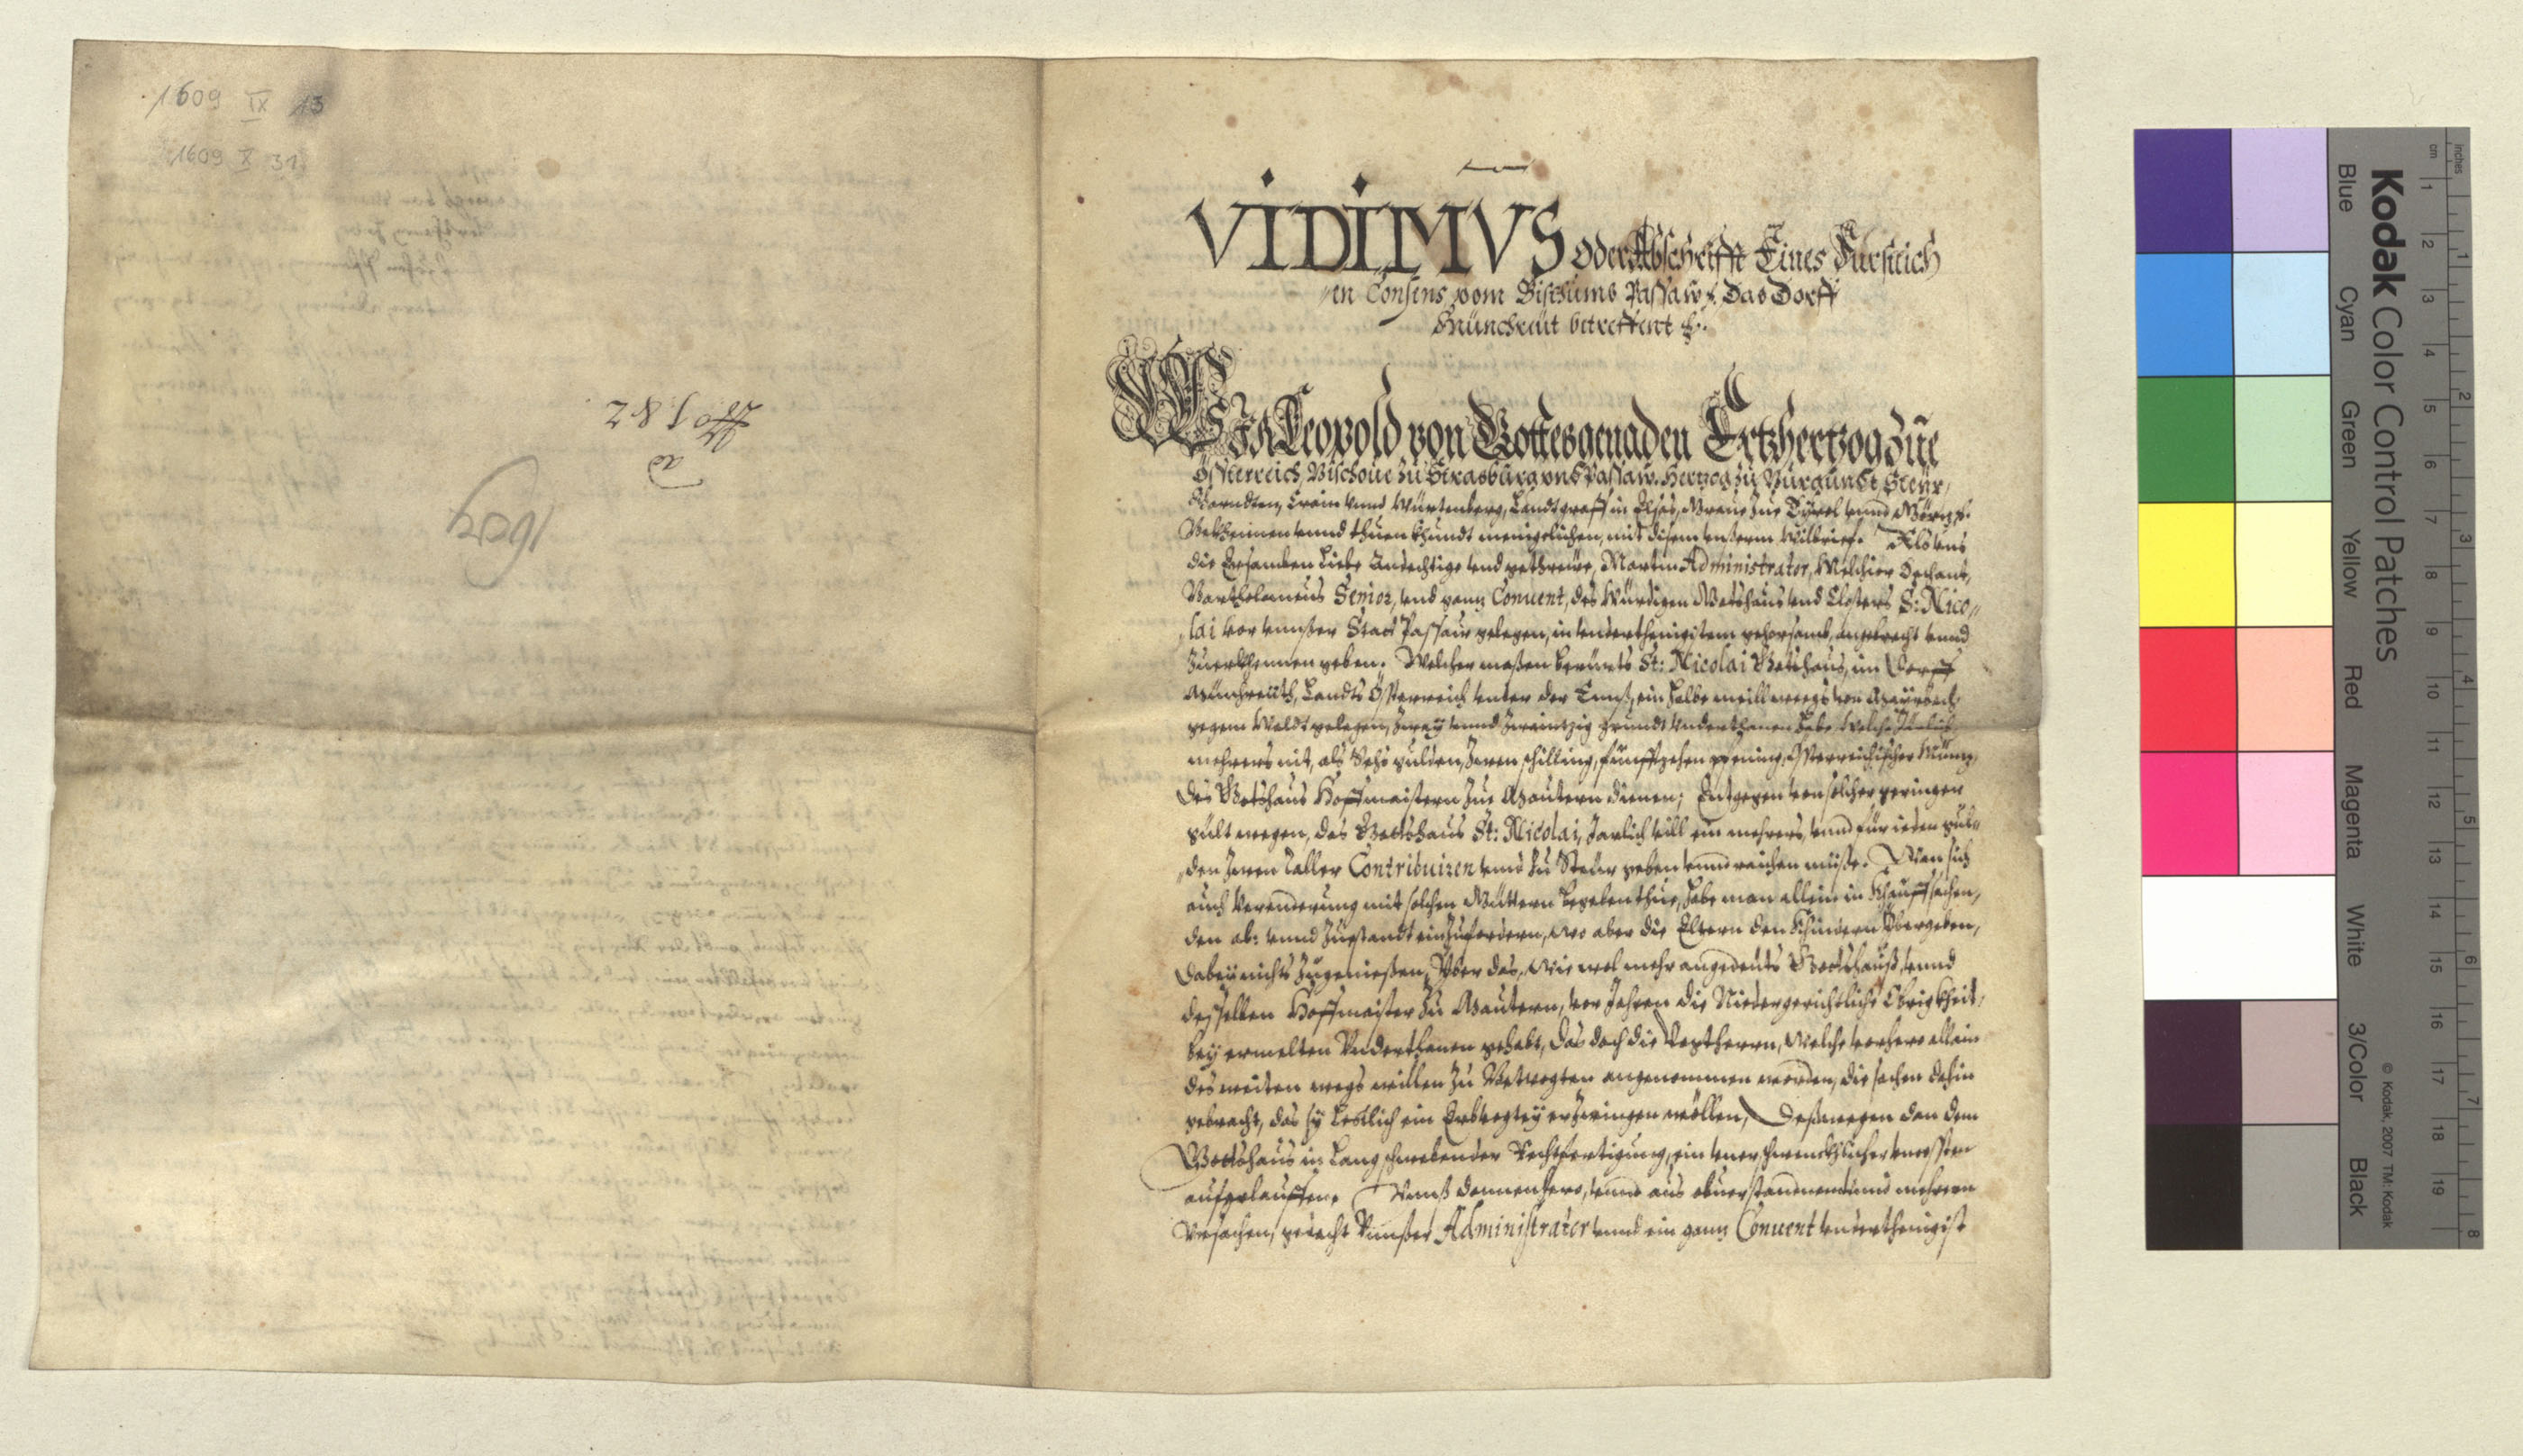 1609 IX 13
1609 X 31
No 182
VIDIMVS oder Abschrifft Eines Fürstlich
en Consens vom Bisthums Passaw. Das Dorff
Münchreüt betreffent
Wir Leopold von Gottes genaden Ertzhertzog Zue
Össterreich, Bischoue zu Strasburg vnd Passaw. Hertzog zu Burgundt, Steyr,
Kärndten, Crain vnnd Würtenberg, Landtgraff in Elsas, Graue Zue Tyrol vnnd Görz.
Bekhennen vnnd thuen khundt menigclichen, mit disem vnserm Wilbrief. Als vns
die Ersamben Liebe Andechtige vnd gethrewe, Martin Administrator, Melchior Dechant,
Bartholomeus Senior, vnd ganz Conuent, des Würdigen Gotshaus vnd Closters S: Nico„
„lai vor vnnser Stadt Passaw gelegen, in vnderthenigistem gehorsamb, angebracht vnnd
Zuerkhennen geben. Welcher massen berürts St: Nicolai Gotshaus, im Dorff
Münchreüth, Landts Össterreich vnter der Ennß, ein halbe meill weegs von
gegem Waldt gelegen, Zway vnnd Zwaintzig grundt vnderthanen habe, Welche Järlich
mehrers nit, als Sechs gulden, Zwen schilling, fünffzehen pfening, Össterreichischer Müntz,
des Gotshaus Hoffmaistern Zue Mauttern dienen; Entgegen von solcher geringen
gült wegen, das Gottshaus St: Nicolai, Jarlich vill ein mehrers, vnnd für ieden gul„
„den Zwen Taller Contribuiren vnd Zu Steür geben vnnd raichen müsse. Wan sich
auch Verenderung mit solchen Güttern begeben thue, habe man allein in Khauffsachen,
den ab: vnnd Zuestandt ein Zufordern, wo aber die Eltern den Khindern Übergeben,
dabey nichts Zugeniessen, Über das, wie wol mehr angedeuts Gottshauß, vnnd
desselben Hoffmaister Zu Mauttern, vor Jahren die Nidergerichtliche Obrigkheit,
bey ermelten Vnderthanen gehabt, das doch die Vogtherrn, Welche vorhero allain
des weiten wegs willen Zu Vogten angenommen worden, die sachen dahin
gebracht, das sy Lestlich ein Erbvogtey erZwingen wöllen, Deßwegen dan dem
Gottshaus in Lang schwebender Rechtfertigung, ein vncosten
aufgelauffen. Vmb dannenhero, vnnd aus oberstandnen vnnd mehrern
Vrsachen, gedacht Vnnser Administrator vnnd ein ganz Conuent vnderthenigist
Kodak Color Control Patches
Blue Cyan Green Yellow Red Magenta White 3/Color Black
© Kodak, 2007 TM: Kodak
cm 1 2 3 4 5 6 7 8 9 10 11 12 13 14 15 16 17 18 19
inches 1 2 3 4 5 6 7 8